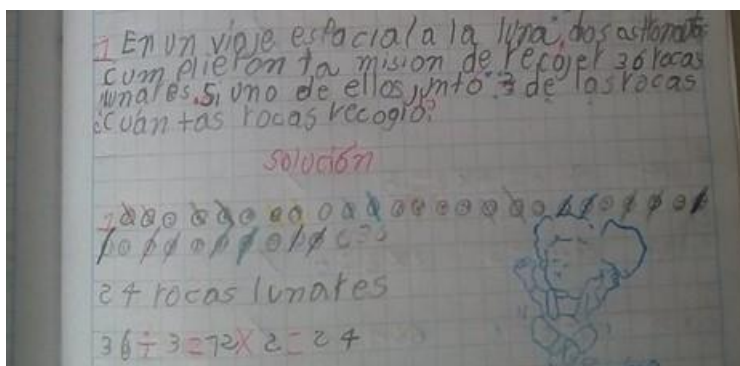 1 En un viaje espacial a la luna, dos astronautas
cumplieron la mision de recojer 36 rocas
lunares. Si uno de ellos junto de las rocas
¿Cuantas rocas recogio?
solución
24 rocas lunares
36 ÷ 3 = 12 x 2 = 24